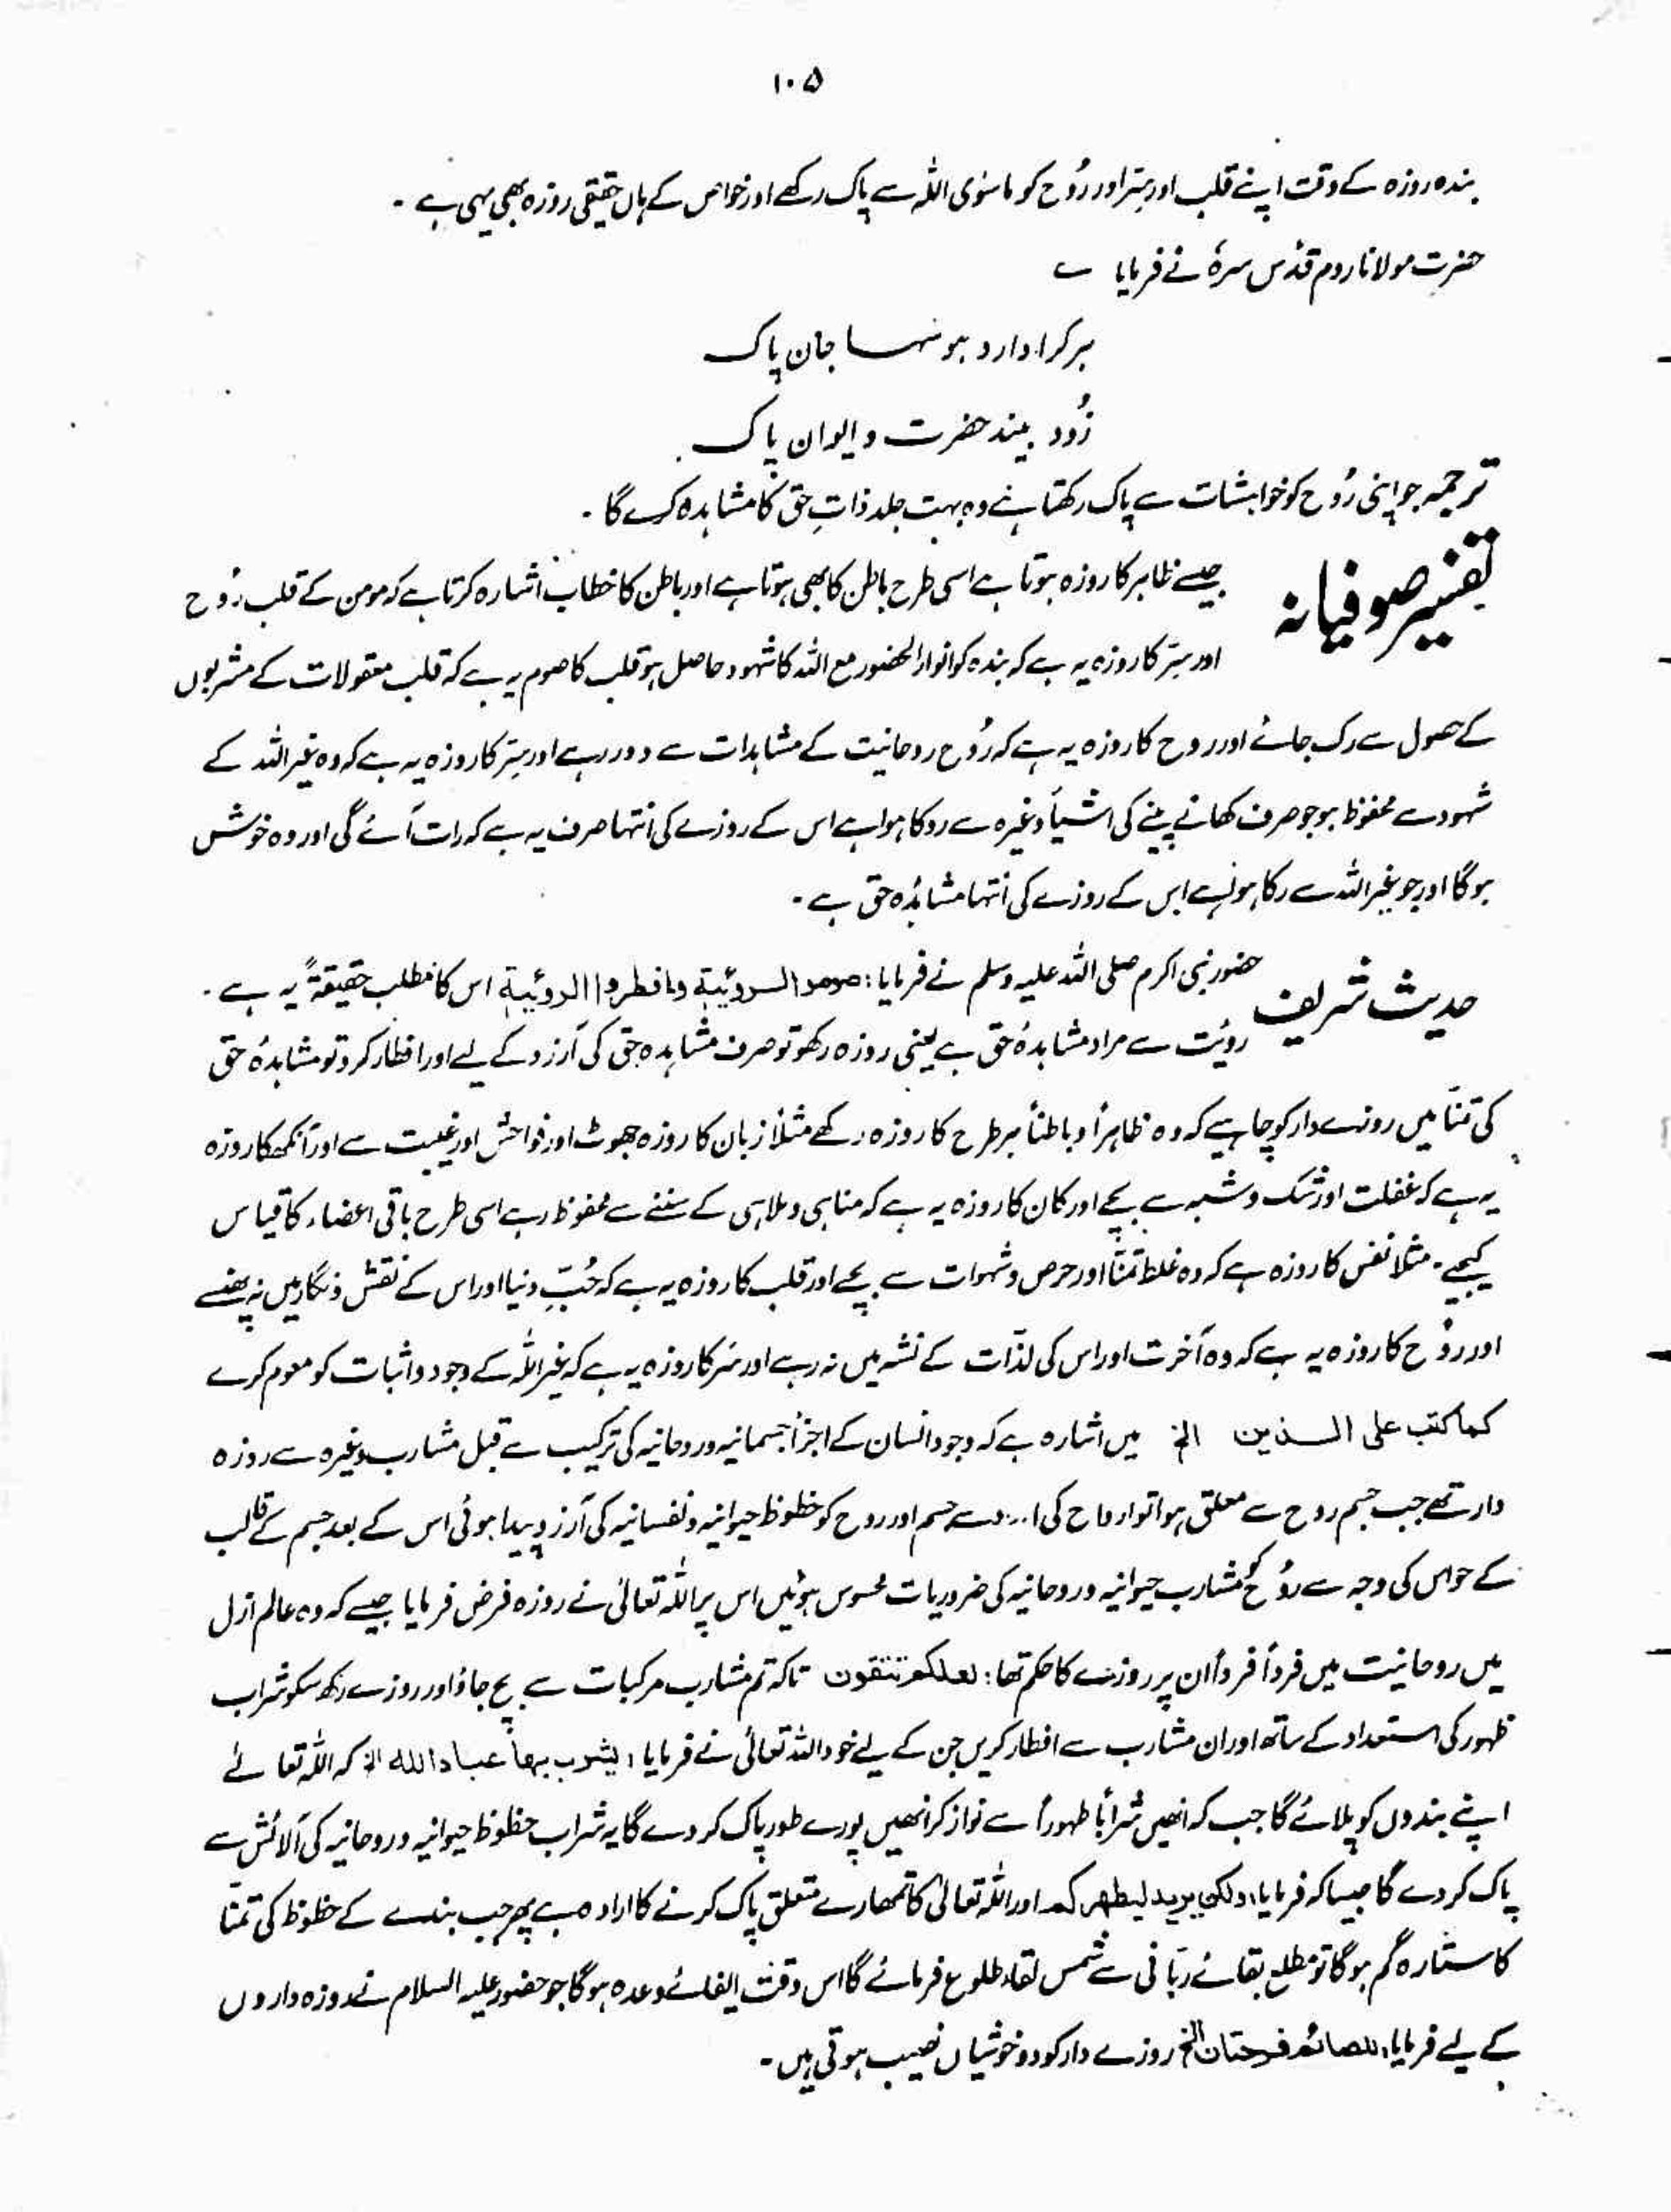 ۱۰۵
بندہ روزہ کے وقت اپنے قلب اور سِتر اور رُوح کو ماسوی اللہ سے پاک رکھے اور خواص کے ہاں حقیقی روزہ بھی یہی ہے ۔
حضرت مولانا روم قدّس سرہٗ نے فرمایا ؎
ہر کرا دارد ہوسہا جان پاک
زُود بیند حضرت و ایوان پاک
ترجمہ جو اپنی رُوح کو خواہشات سے پاک رکھتا ہے وہ بہت جلد ذاتِ حق کا مشاہدہ کرے گا ۔
تفسیر صوفیانہ جیسے ظاہر کا روزہ ہوتا ہے اسی طرح باطن کا بھی ہوتا ہے اور باطن کا خطاب اشارہ کرتا ہے کہ مومن کے قلب رُوح
اور سِتر کا روزہ یہ ہے کہ بندہ کو انوار الحضور مع اللہ کا شہود حاصل ہو قلب کا صوم یہ ہے کہ قلب معقولات کے مشربوں
کے حصول سے رک جائے اور روح کا روزہ یہ ہے کہ رُوح روحانیت کے مشاہدات سے دور رہے اور سِتر کا روزہ یہ ہے کہ وہ غیر اللہ کے
شہود سے محفوظ ہو جو صرف کھانے پینے کی اشیأ وغیرہ سے روکا ہوا ہے اس کے روزے کی انتہا صرف یہ ہے کہ رات آئے گی اور وہ خوش
ہوگا اور جو غیر اللہ سے رکا ہوا ہے اس کے روزے کی انتہا مشاہدۂ حق ہے ۔
حدیث شریف حضور نبی اکرم صلی اللہ علیہ وسلم نے فرمایا : صوموا لروئیتہ وافطروا لروئیتہ اس کا مطلب حقیقۃً یہ ہے ۔
روئیت سے مراد مشاہدۂ حق ہے یعنی روزہ رکھو تو صرف مشاہدہ حق کی آرزو کے لیے اور افطار کرو تو مشاہدۂ حق
کی تمنّا میں روزے دار کو چاہیے کہ وہ ظاہراً و باطناً ہر طرح کا روزہ رکھے مثلاً زبان کا روزہ جھوٹ اور فواحش اور غیبت سے اور آنکھ کا روزہ
یہ ہے کہ غفلت اور شک و شبہ سے بچے اور کان کا روزہ یہ ہے کہ مناہی و ملاہی کے سننے سے محفوظ رہے اسی طرح باقی اعضاء کا قیاس
کیجیے ۔ مثلا نفس کا روزہ ہے کہ وہ غلط تمنّا اور حرص و شہوات سے بچے اور قلب کا روزہ یہ ہے کہ حُبِّ دنیا اور اس کے نقش و نگار میں نہ پھنسے
اور رُوح کا روزہ یہ ہے کہ وہ آخرت اور اس کی لذّات کے نشہ میں نہ رہے اور سِر کا روزہ یہ ہے کہ غیر اللہ کے وجود و اثبات کو معدوم کرے
کما کتب علی الذین الخ میں اشارہ ہے کہ وجود انسان کے اجزأ جسمانیہ و روحانیہ کی ترکیب سے قبل مشارب وغیرہ سے روزہ
دار تھے جب جسم روح سے معلق ہوا تو ارواح کی سے جسم اور روح کو حظوظ حیوانیہ و نفسانیہ کی آرزو پیدا ہوئی اس کے بعد جسم کے قالب
کے حواس کی وجہ سے رُوح کو مشارب حیوانیہ و روحانیہ کی ضروریات محسوس ہوئیں اس پر اللہ تعالیٰ نے روزہ فرض فرمایا جیسے کہ وہ عالم ازل
میں روحانیت میں فرداً فرداً ان پر روزے کا حکم تھا : لعلکم تتقون تاکہ تم مشارب مرکبات سے بچ جاؤ اور روزے رکھ سکو شراب
ظہور کی استعداد کے ساتھ اور ان مشارب سے افطار کریں جن کے لیے خود اللہ تعالیٰ نے فرمایا : یشرب بہا عباد اللہ الخ کہ اللہ تعالےٰ
اپنے بندوں کو پلائے گا جب کہ انھیں شراباً طہوراً سے نواز کر انھیں پورے طور پاک کر دے گا یہ شراب حظوظ حیوانیہ و روحانیہ کی آلائش سے
پاک کر دے گا جیسا کہ فرمایا : ولکن یرید لیطہرکم اور اللہ تعالیٰ کا تمھارے متعلق پاک کرنے کا ارادہ ہے پھر جب بندے کے حظوظ کی تمنّا
کا ستارہ گم ہوگا تو مطلع بقائے ربّانی سے شمس لقاء طلوع فرمائے گا اس وقت ایفائے وعدہ ہوگا جو حضور علیہ السلام نے روزہ داروں
کے لیے فرمایا : للصائم فرحتان الخ روزے دار کو دو خوشیاں نصیب ہوتی ہیں ۔